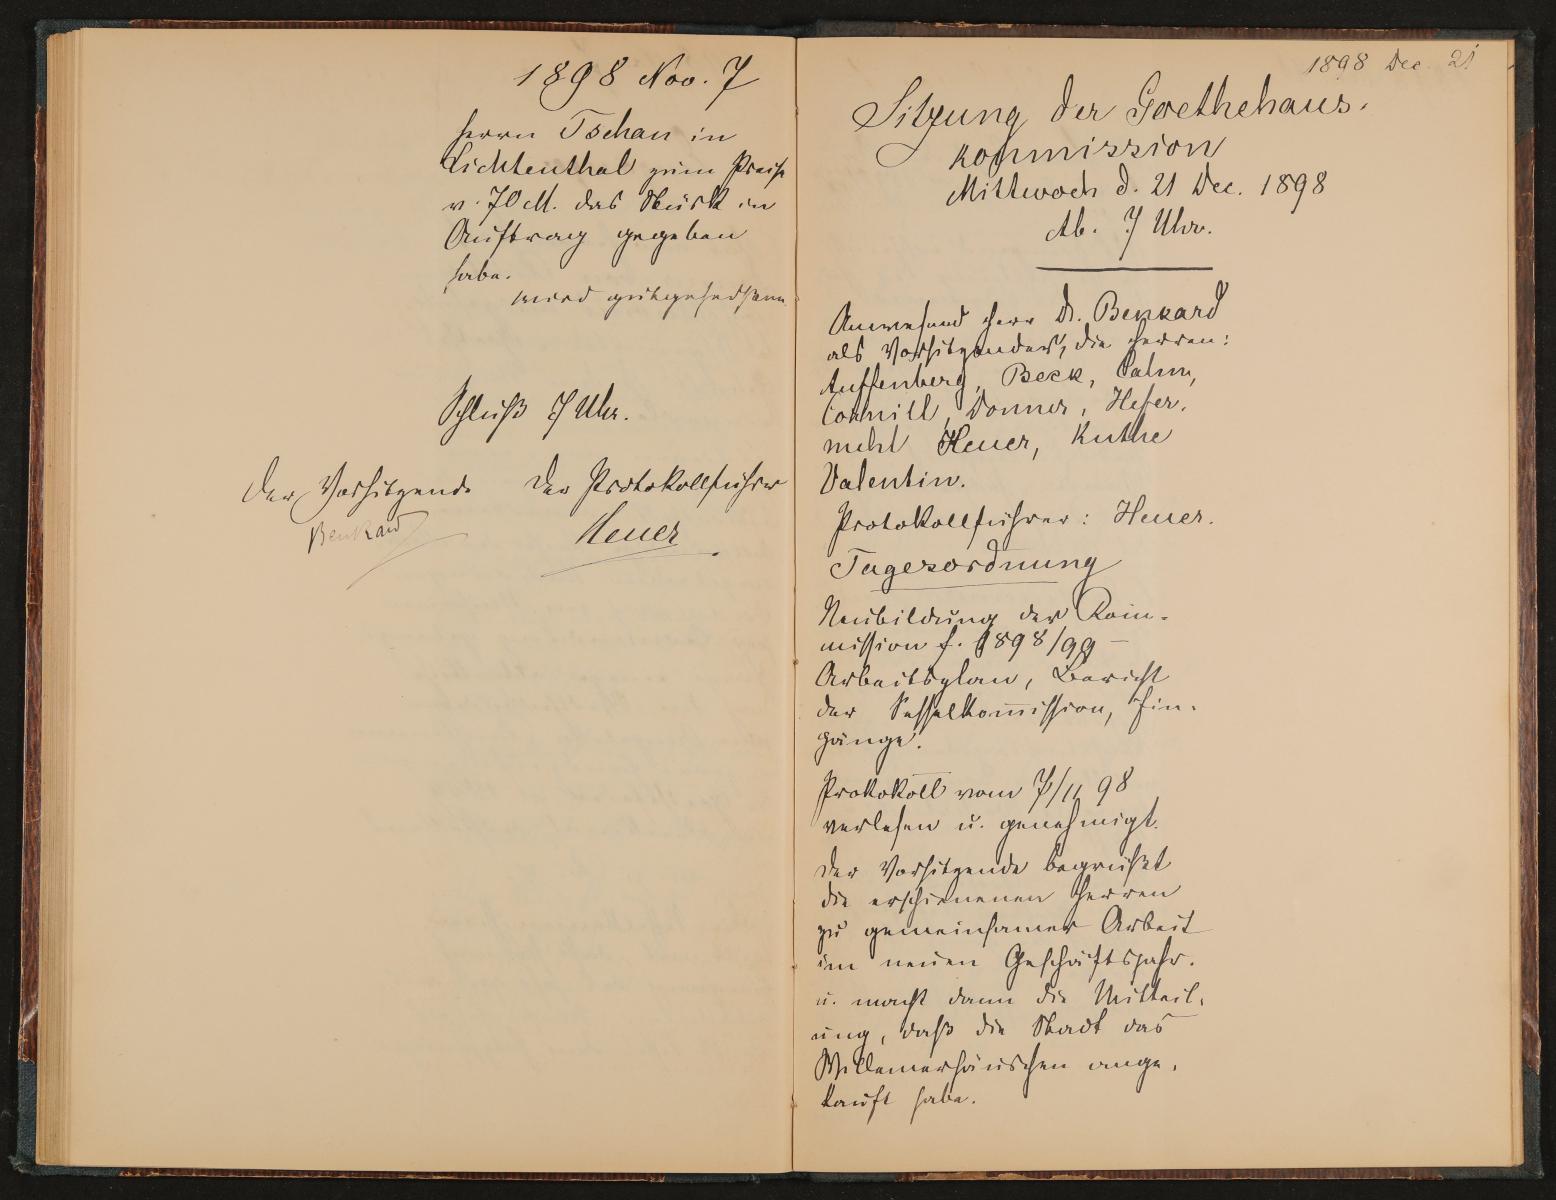 1898 Nov. 7
Herrn Tschan in
Lichtenthal zum Preise
v. 70 M. das Stück in
Auftrag gegeben
habe.
wird gutgeheißen.
Schluß 7 Uhr.
Der Vorsitzende Der Protokollführer
Benkard Heuer
1898 Dec. 21
Sitzung der Goethehaus-
kommission
Mittwoch d. 21 Dec. 1898
Ab. 7 Uhr.
Anwesend Herr Dr. Benkard
als Vorsitzender, die Herren:
Auffenberg, Beck, Cahn,
Cornill, Donner, Hefer-
mehl Heuer, Kuthe
Valentin.
Protokollführer: Heuer.
Tagesordnung
Neubildung der Kom-
mission f. 1898/99 –
Arbeitsplan, Bericht
der Sesselkom̅ission, Ein-
gänge.
Protokoll vom 7/11 98
verlesen u. genehmigt.
Der Vorsitzende begrüßt
die erschienenen Herren
zu gemeinsamer Arbeit
im neuen Geschäftsjahr.
u. macht dann die Mitteil-
ung, daß die Stadt das
Willemerhäuschen ange-
kauft habe.